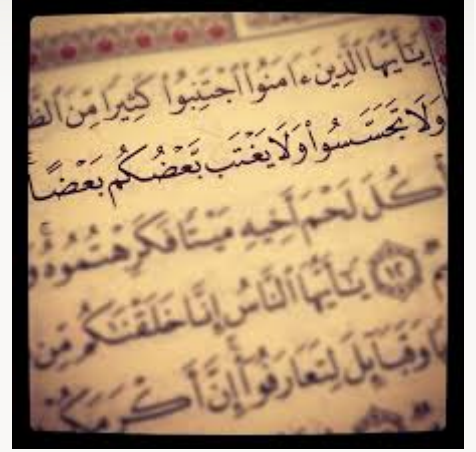 يَـٰٓأَيُّهَا ٱلَّذِينَ ءَامَنُوا۟ ٱجْتَنِبُوا۟ كَثِيرًا مِّنَ
وَلَا تَجَسَّسُوا۟ وَلَا يَغْتَب بَّعْضُكُم بَعْضًا
أَكُلَ لَحْمَ أَخِيهِ مَيْتًا فَكَرِهْتُمُوهُ
١٢ يَـٰٓأَيُّهَا ٱلنَّاسُ إِنَّا خَلَقْنَـٰكُم مِّن
وَقَبَآئِلَ لِتَعَارَفُوٓا۟ إِنَّ أَكْرَمَكُمْ